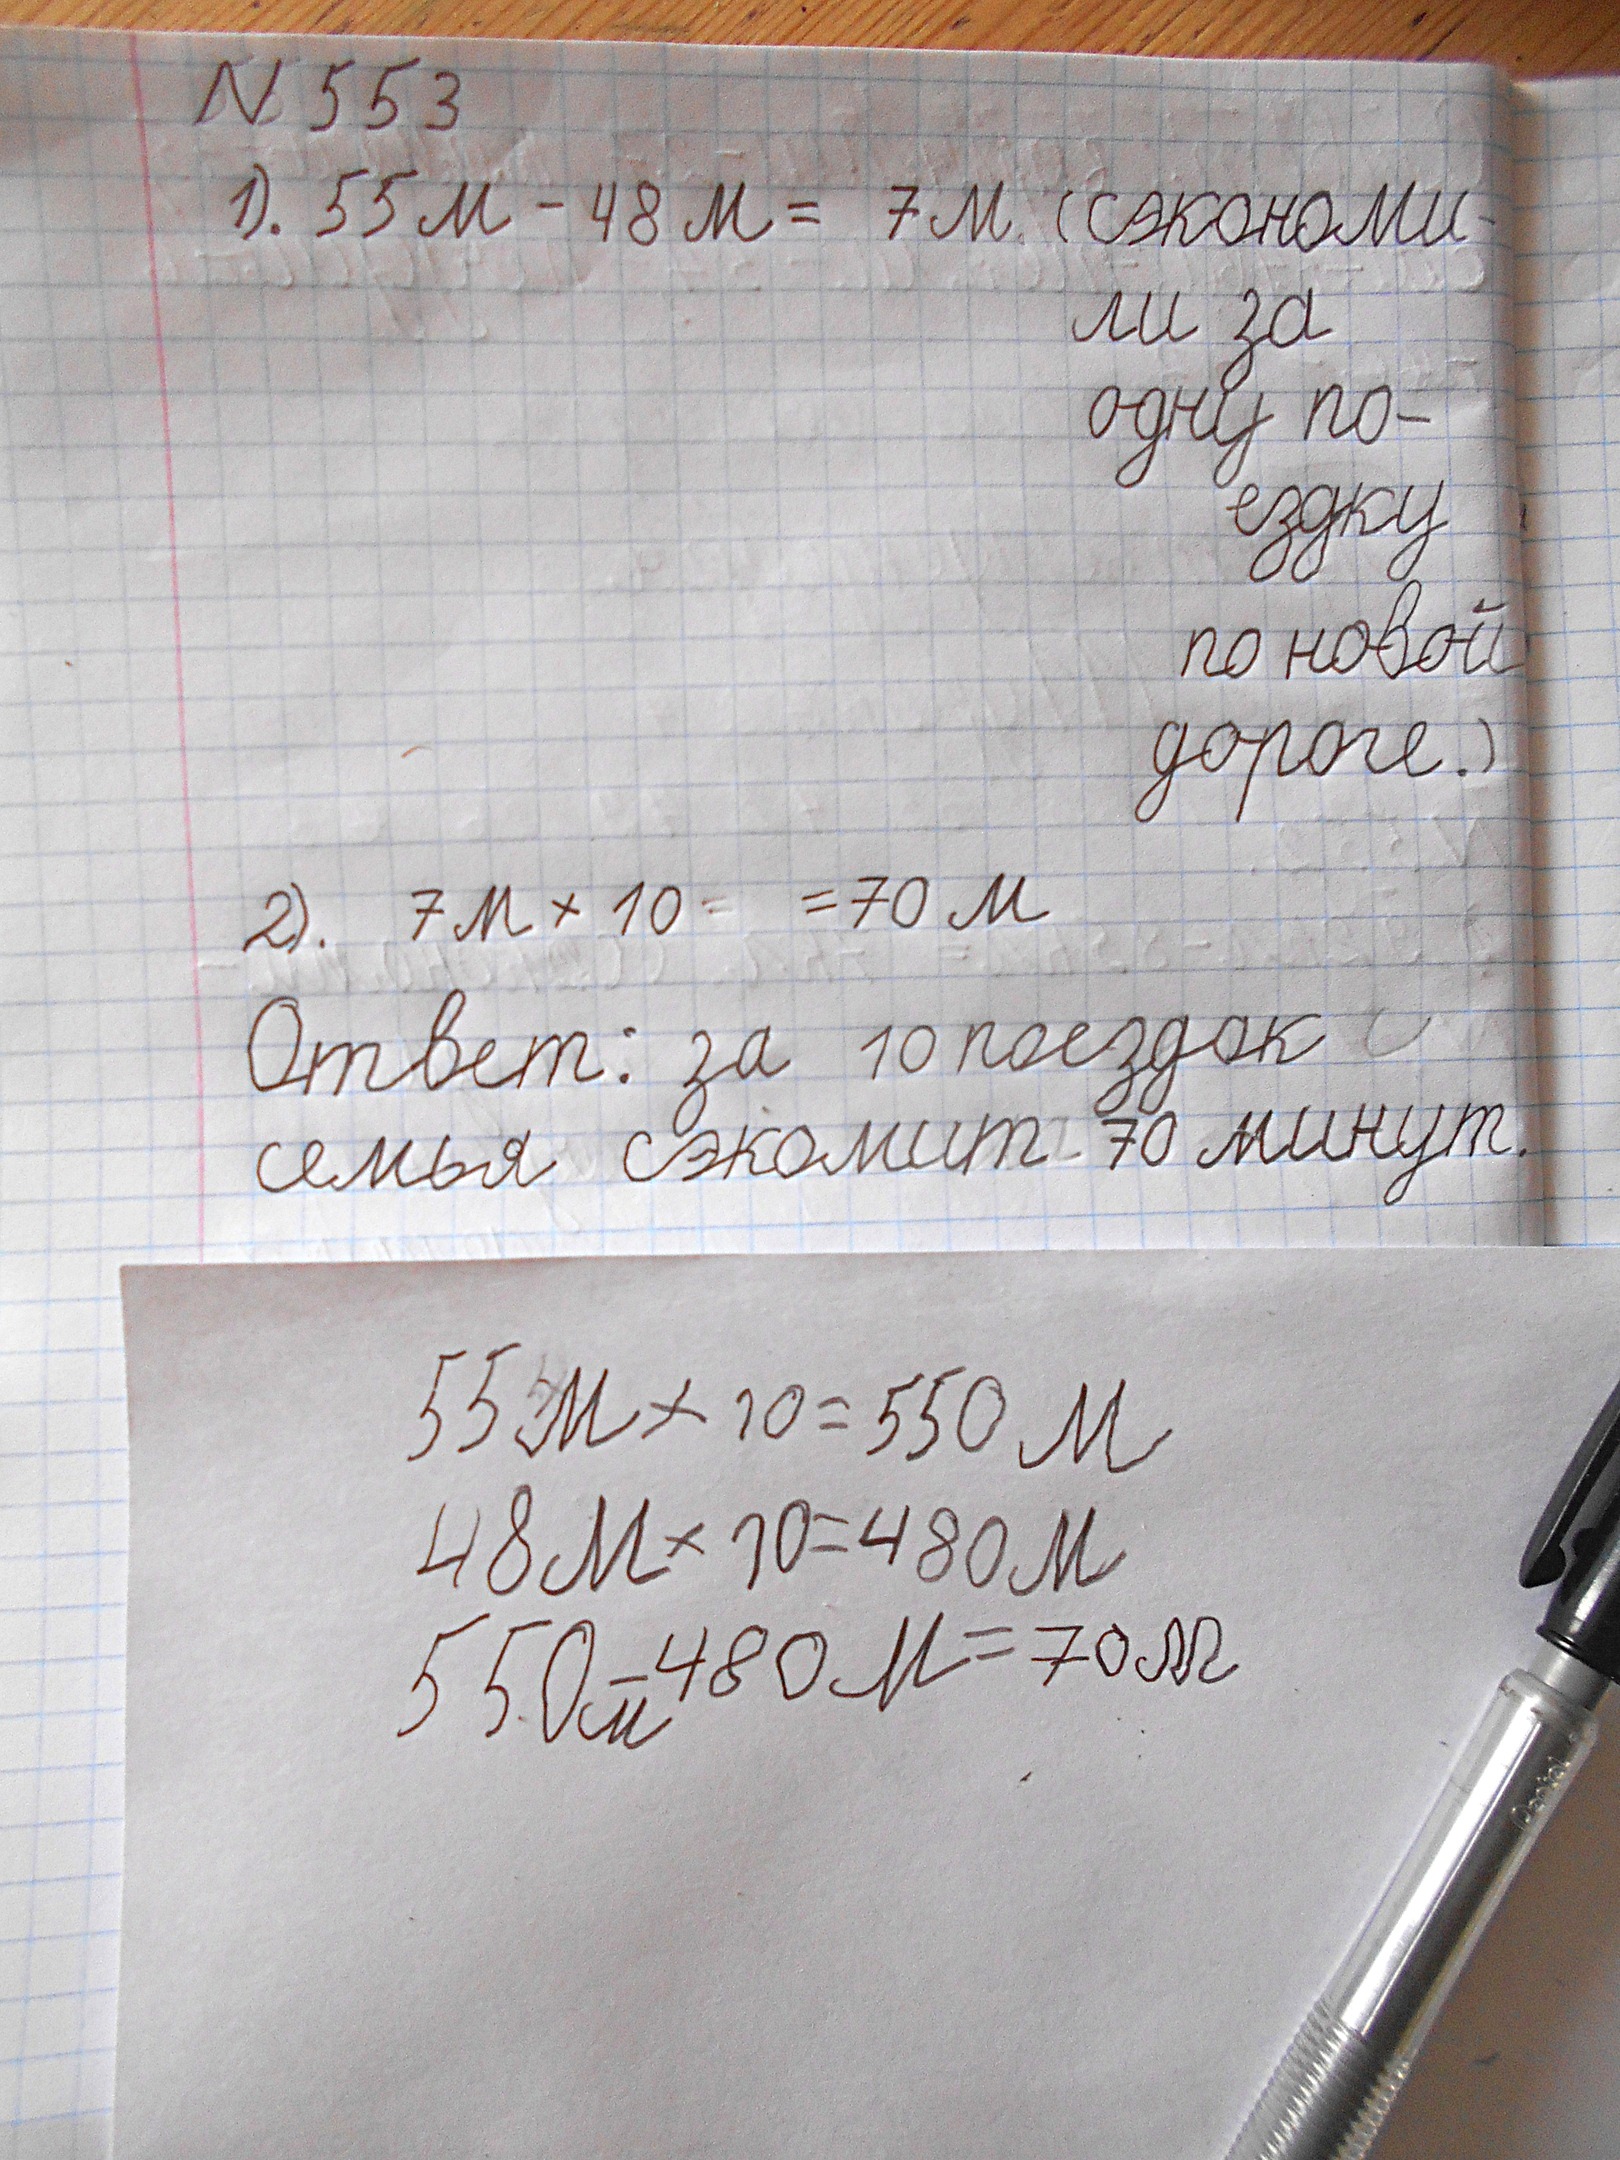 N 553
1). 55 м - 48 м = 7 м. (сэкономи-
ли за
одну по-
ездку
по новой
дороге.)
2). 7 м × 10 = = 70 м
Ответ: за 10 поездок
семья сэкомит 70 минут.
55 м × 10 = 550 м
48 м × 10 = 480 м
550 м - 480 м = 70 м
Pentel